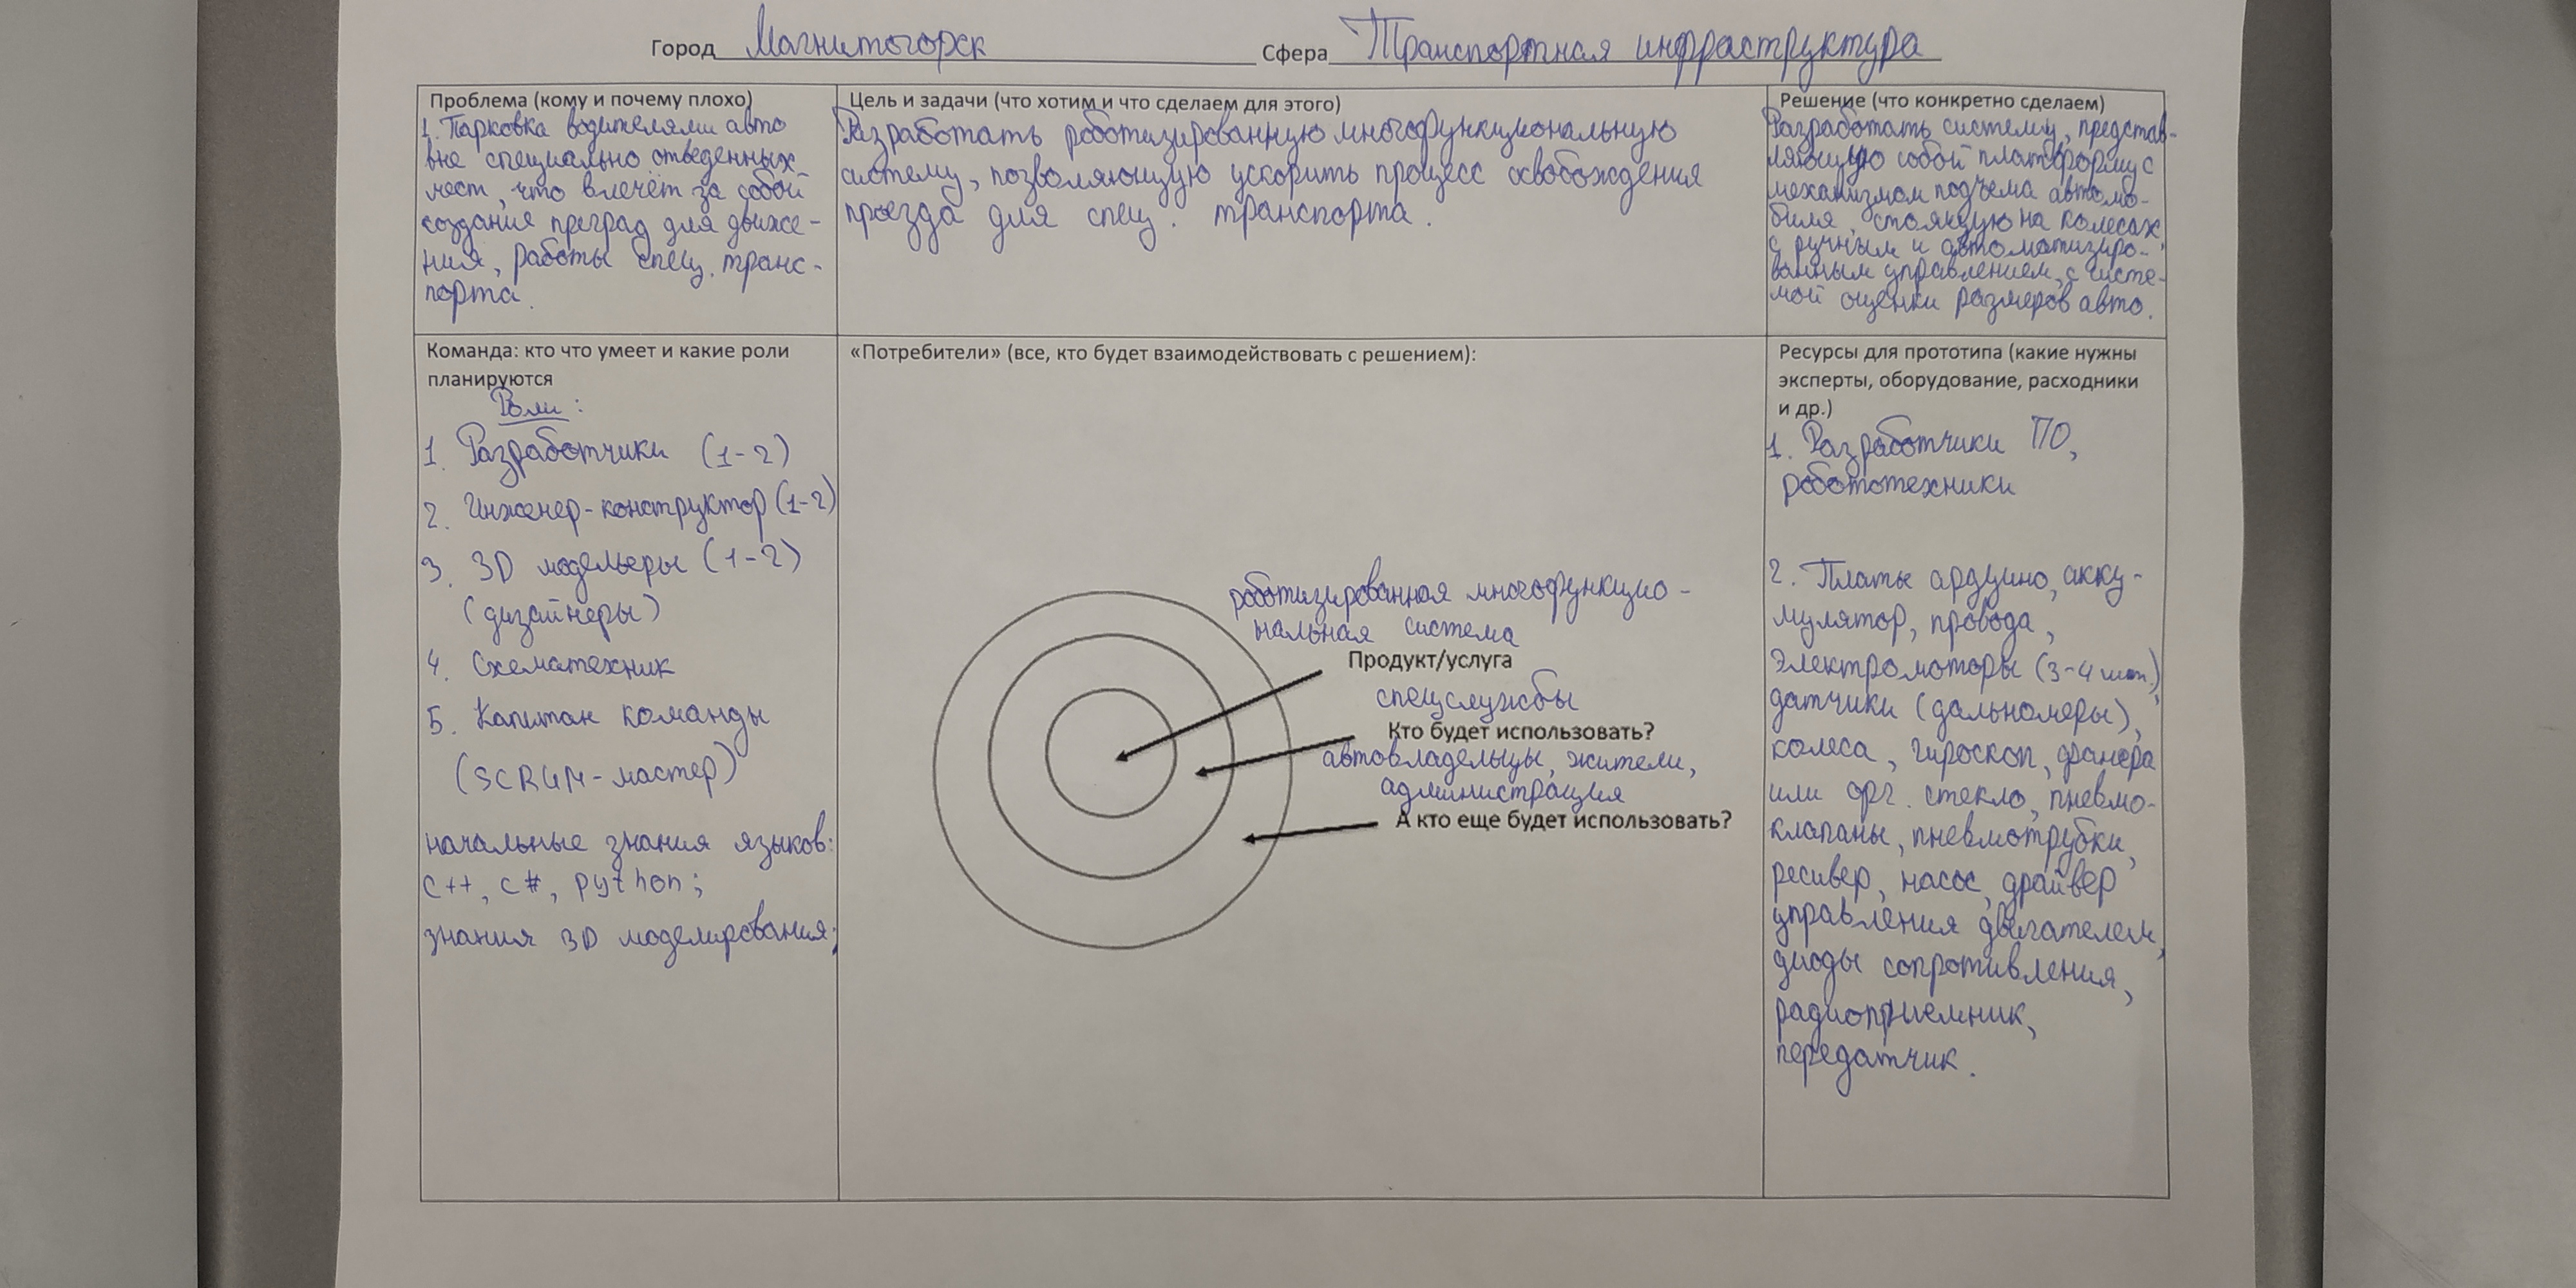 Город Магнитогорск Сфера Транспортная инфраструктура
Проблема (кому и почему плохо)
1. Парковка водителями авто
вне специально отведенных
мест, что влечёт за собой
создание преград для движе-
ния, работы спец. транс-
порта.
Цель и задачи (что хотим и что сделаем для этого)
Разработать роботизированную многофункциональную
систему, позволяющую ускорить процесс освобождения
проезда для спец. транспорта.
Решение (что конкретно сделаем)
Разработать систему, представ-
ляющую собой платформу с
механизмом подъема автомо-
биля, стоящую на колесах,
с ручным и автоматизиро-
ванным управлением, с систе-
мой оценки размеров авто.
Команда: кто что умеет и какие роли
планируются
Роли:
1. Разработчики (1-2)
2. Инженер-конструктор (1-2)
3. 3D модельеры (1-2)
(дизайнеры)
4. Схематехник
5. Капитан команды
(SCRUM-мастер)
начальные знания языков:
C++, C#, python;
знания 3D моделирования;
«Потребители» (все, кто будет взаимодействовать с решением):
роботизированная многофункцио-
нальная система
Продукт/услуга
спецслужбы
Кто будет использовать?
автовладельцы, жители,
администрация
А кто еще будет использовать?
Ресурсы для прототипа (какие нужны
эксперты, оборудование, расходники
и др.)
1. Разработчики ПО,
робототехники
2. Платы ардуино, акку-
мулятор, провода,
электромоторы (3-4 шт.),
датчики (дальномеры),
колеса, гироскоп, фанера
или орг. стекло, пневмо-
клапаны, пневмотрубки,
ресивер, насос, драйвер
управления двигателем,
диоды сопротивления,
радиоприемник,
передатчик.